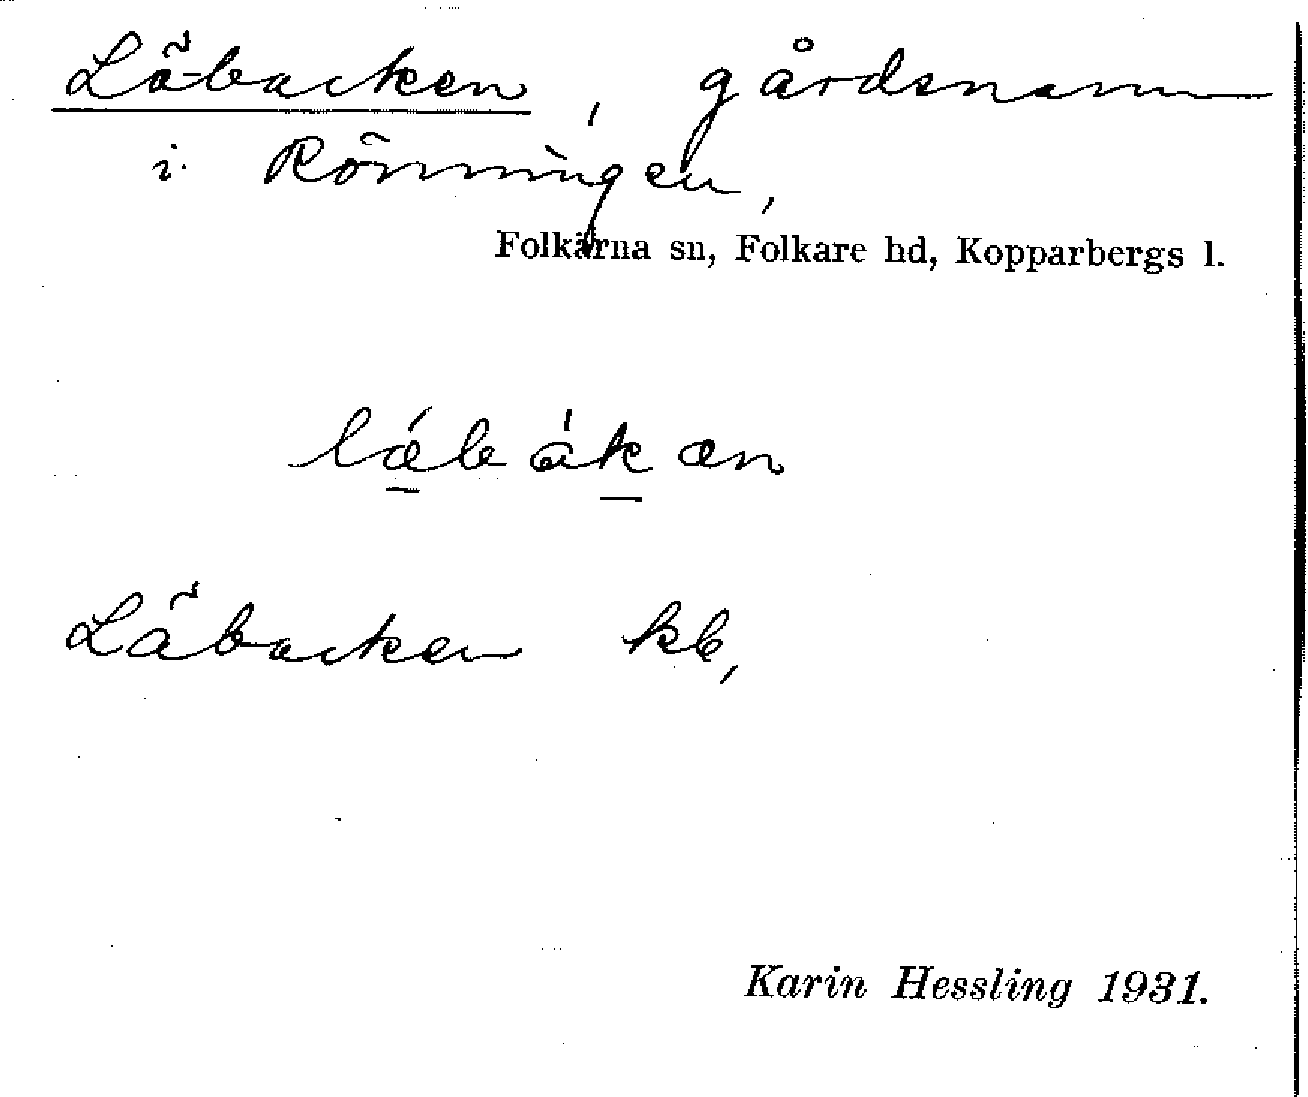 Läbacken, gårdsnamn
i Rönningen,
Folkärna sn, Folkare hd, Kopparbergs l.
lǽbákæn
Läbacken kb,
Karin Hessling 1931.